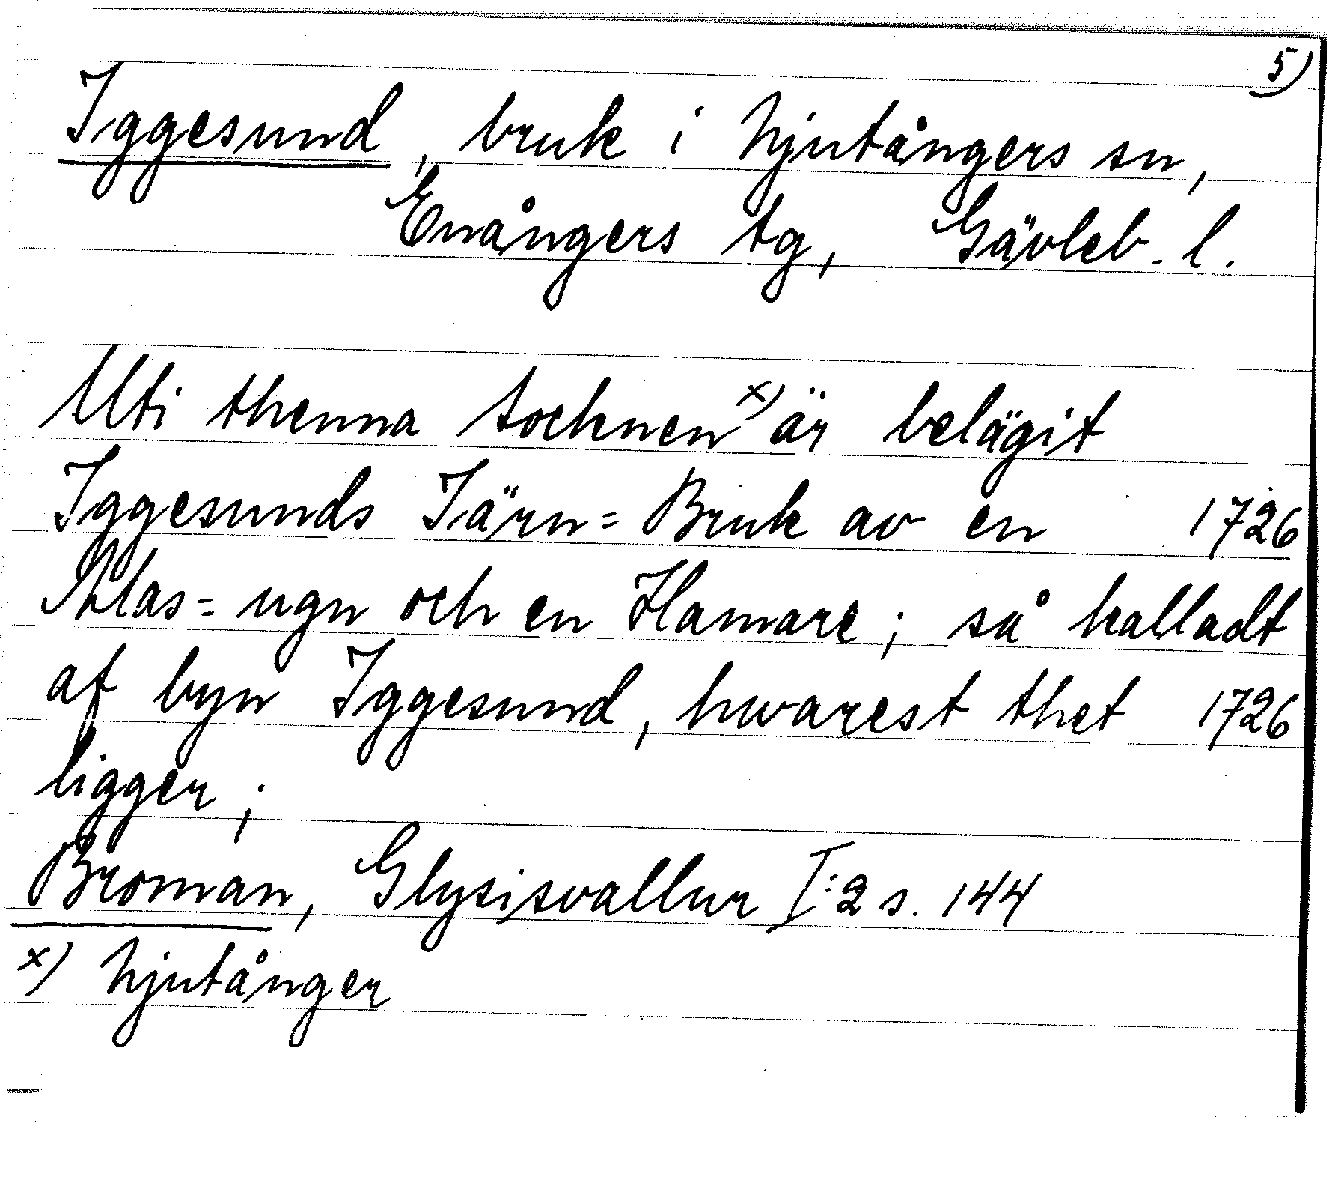 5)
Iggesund, bruk i Njutångers sn,
Enångers tg, Gävleb. l.
Uti thenna Sochnen x) är belägit
Iggesunds Järn= Bruk av en 1726
Blas= ugn och en Hamare; så kalladt
af byn Iggesund, hwarest thet 1726
ligger;
Broman, Glysisvallur I:2 s. 144
x) Njutånger